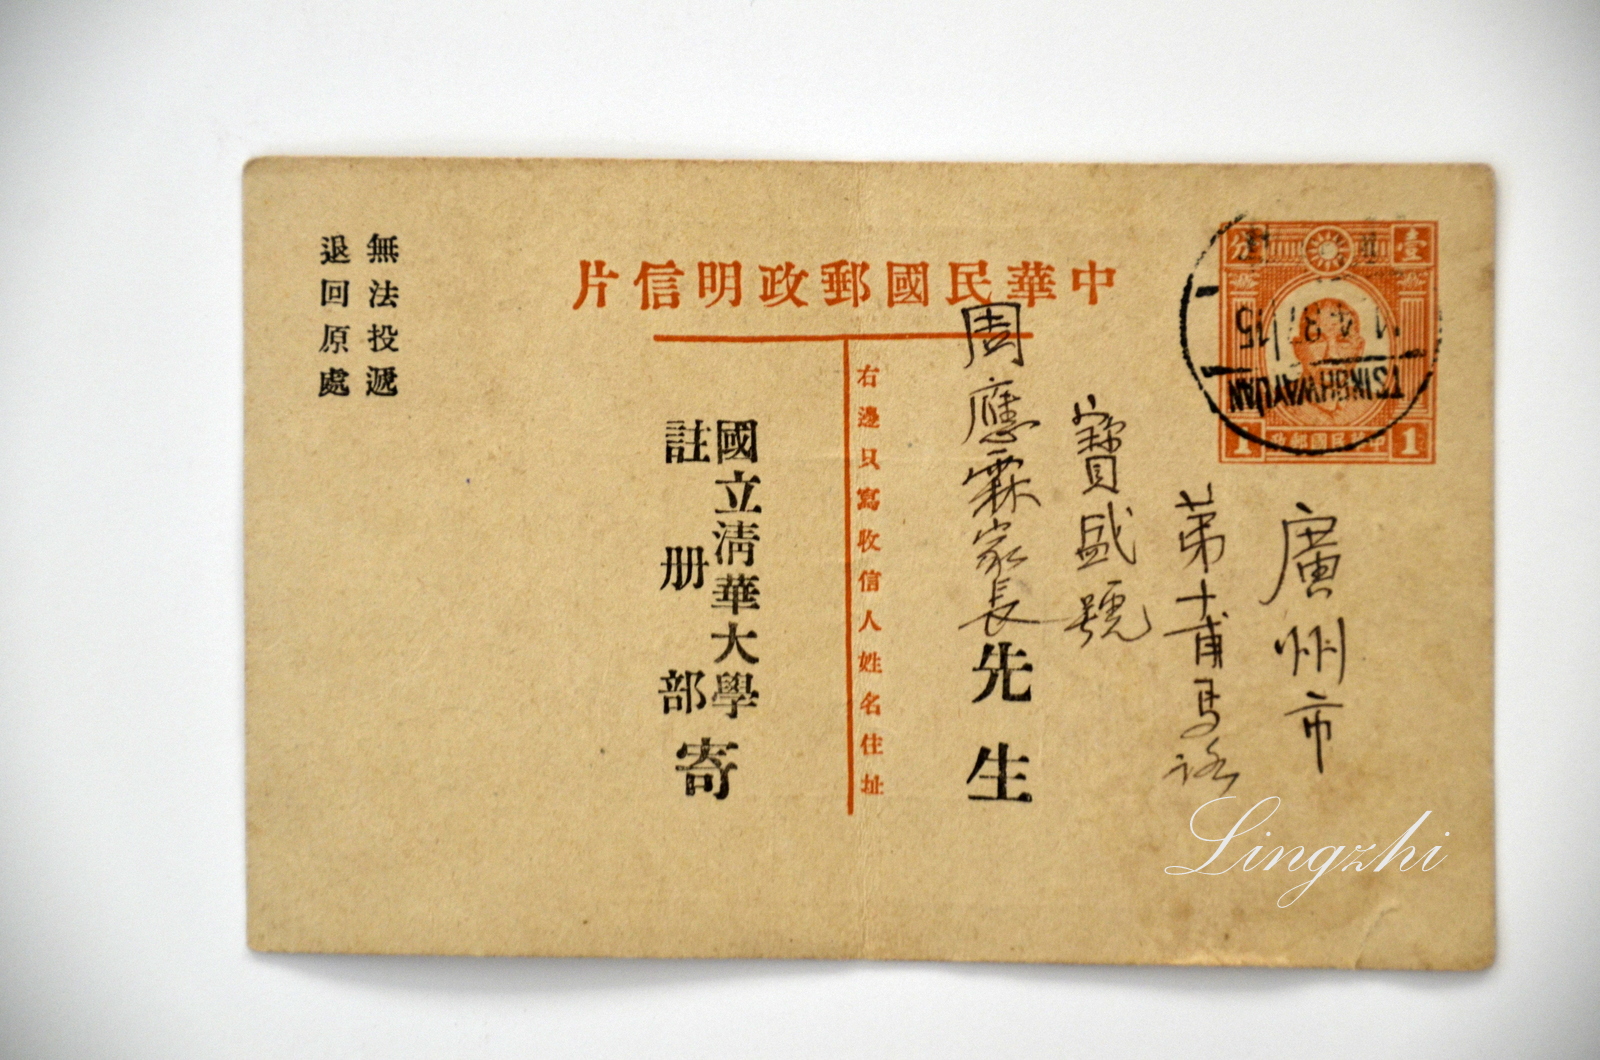 中華民國郵政明信片
壹
分
1
1
中華民國郵政
TSINGHWAYUAN
15
廣州市
第十甫馬路
寶盛號
周應霖家長先生
右邊只寫收信人姓名住址
國立清華大學
註册部
寄
無法投遞
退回原處
Lingzhi